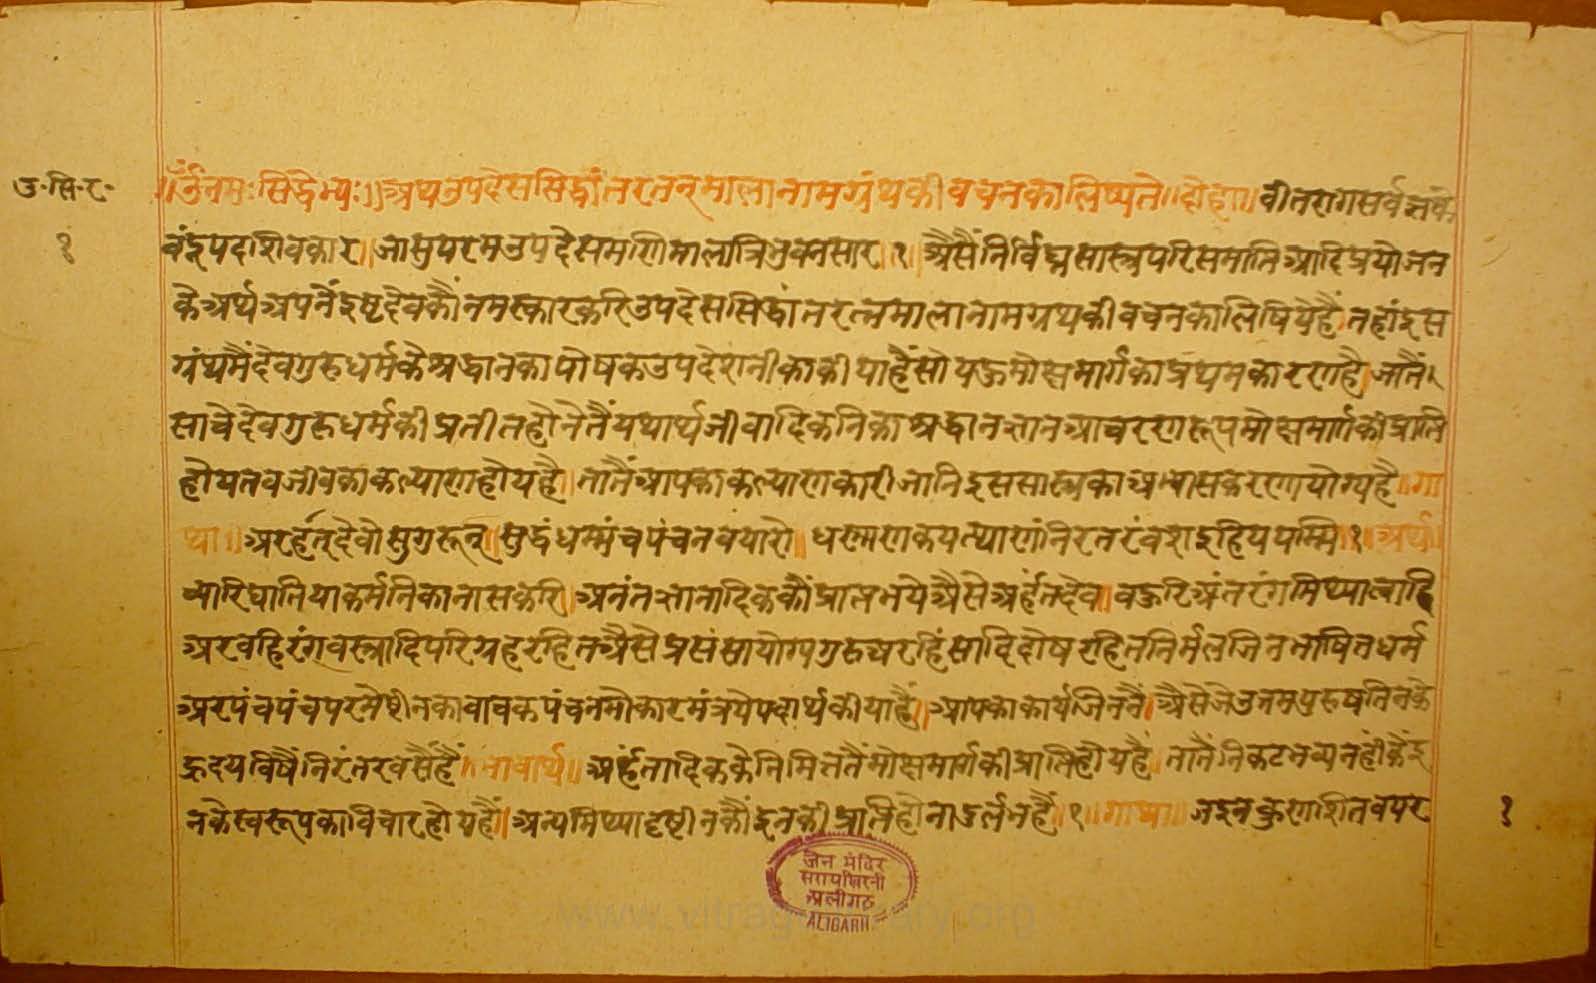 उ.सि.र.
१
॥ॐनमःसिद्धेभ्यः॥अथउपदेससिद्धांतरतनमालानामग्रंथकीवचनकालिष्यते॥दोहा॥वीतरागसर्वज्ञके
वंदूपदाशिवकार॥जासुपरमउपदेसमणिमालात्रिभुवनसार॥१॥अैसैंनिर्विघ्नसास्त्रपरिसमाप्तिआदिप्रयोजन
केअर्थअपनेंइष्टदेवकौंनमस्कारकरिउपदेससिद्धांतरत्नमालानामग्रंथकीवचनकालिषियेहैं।तहांइस
ग्रंथमैंदेवगुरुधर्मकेश्रद्धानकापोषकउपदेशनीकाकीयाहैंसोयहमोक्षमार्गकाप्रथमकारणहै।जातैं
साचेदेवगुरुधर्मकीप्रतीतहोनेतैंयथार्थजीवादिकनिकाश्रद्धानज्ञानआचरणरूपमोक्षमार्गकीप्राप्ति
होयतवजीवकाकल्याणहोयहै॥तातैंआपकाकल्याणकारीजानिइससास्त्रकाअभ्यासकरणायोग्यहै॥गा
था॥अरहंतदेवोसुगुरूसुद्धंधम्मंचपंचनवयारो॥धण्णाणकयत्थाणंनिरन्तरंवसइहिययम्मि॥१॥अर्थ॥
च्यारिघातियाकर्मनिकानासकरि।अनंतज्ञानादिककौंप्राप्तभयेअैसेअर्हंतदेव।वहुरिअंतरंगमिथ्यात्वादि
अरवहिरंगवस्त्रादिपरिग्रहरहितअैसेप्रसंसायोग्यगुरुअरहिंसादिदोषरहितनिर्मलजिनभाषितधर्म
अरपंचपंचपरमेष्ठीनकावाचकपंचनमोकारमंत्रयेपदार्थकीयाहैं।आपकाकार्यजिननैं।अैसेजेउतमपुरुषतिनके
हृदयविषैंनिरंतरवसैंहैं॥भावार्थ॥अर्हंतादिककैनिमित्ततैंमोक्षमार्गकीप्राप्तिहोयहै॥तातैंनिकटभव्यनहींकैंइ
नकेस्वरूपकाविचारहोयहैं।अन्यमिथ्यादृष्टीनकौंइनकीप्राप्तिहोनादुर्लभहैं॥१॥गाथा॥जइनकुणशितवपर
१
जैन मंदिर
सरायखिरनी
अलीगढ़
ALIGARH